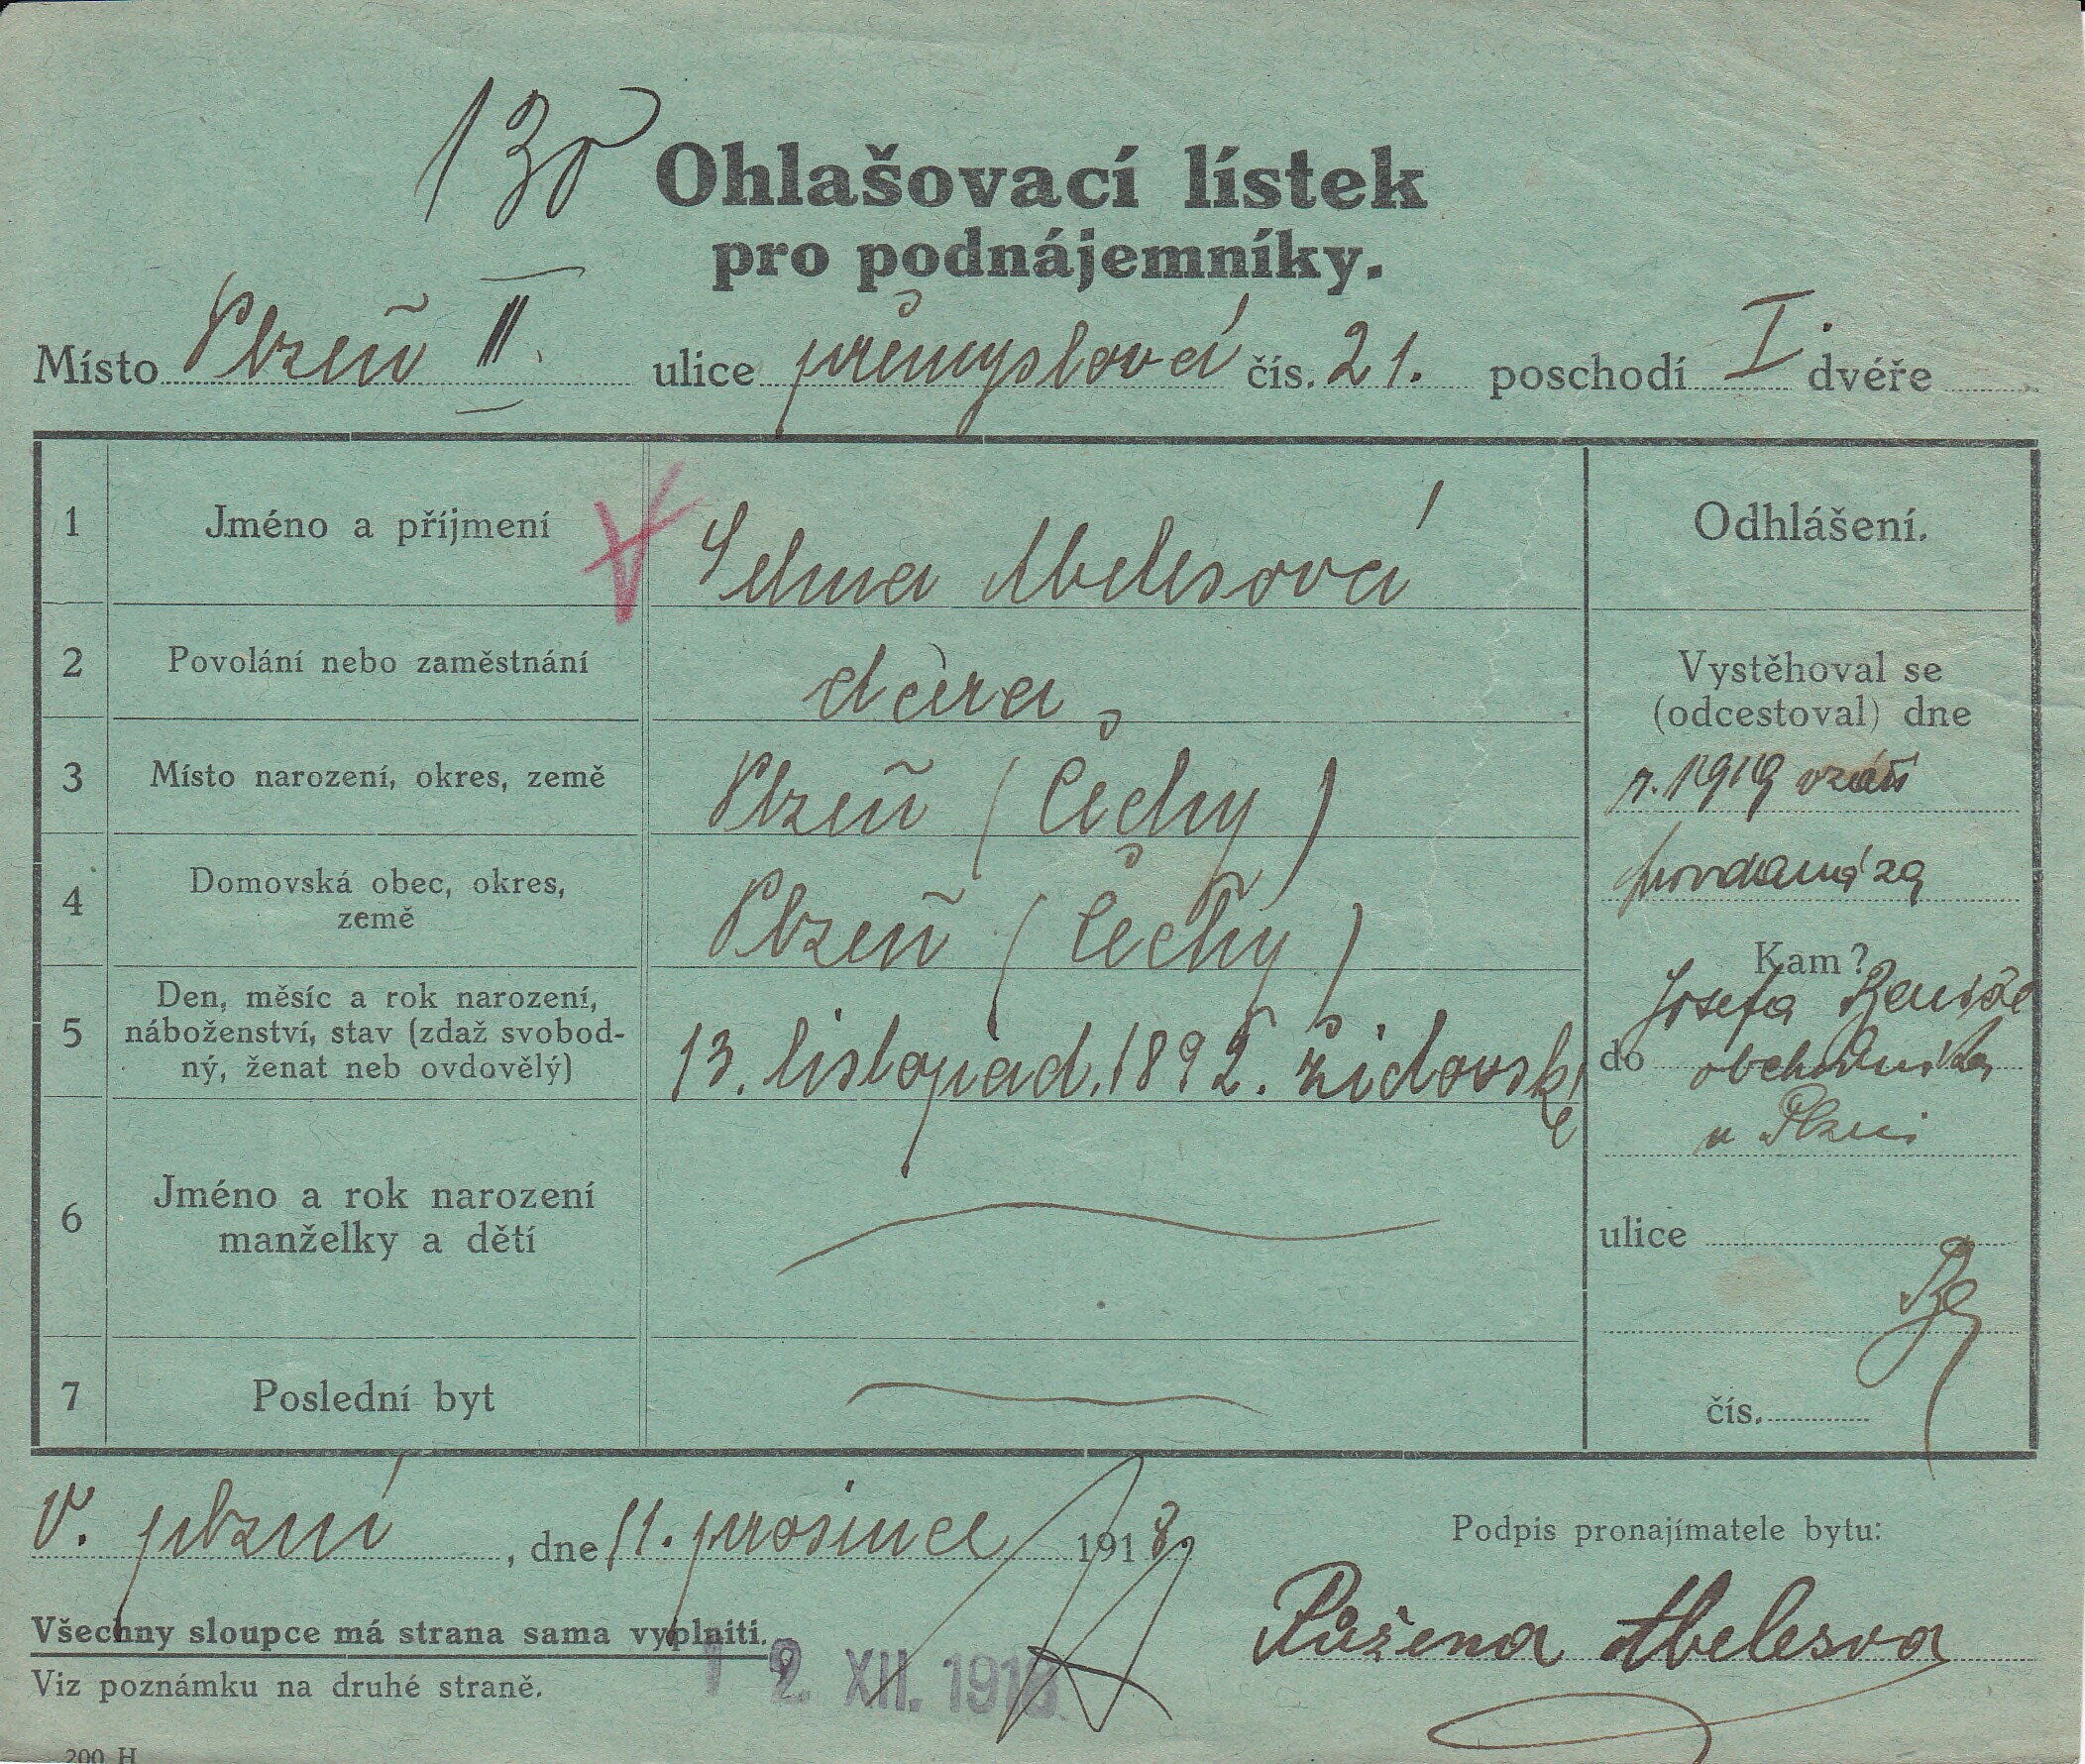 130
Ohlašovací lístek
pro podnájemníky.
Místo Plzeň III. ulice průmyslová čís. 21. poschodí I. dvéře
1 Jméno a příjmení V Selma Abelesová
Odhlášení.
2 Povolání nebo zaměstnání dcera
Vystěhoval se
(odcestoval) dne
3 Místo narození, okres, země Plzeň (Čechy)
r. 1919 v září
provdaná za
4 Domovská obec, okres,
země Plzeň (Čechy)
Kam?
Josefa
5 Den, měsíc a rok narození,
náboženství, stav (zdaž svobod-
ný, ženat neb ovdovělý) 13. listopad. 1892. židovské
do obchodníka
v Plzni
6 Jméno a rok narození
manželky a dětí
ulice
7 Poslední byt
čís.
V. plzni, dne 11. prosince 1918.
Podpis pronajímatele bytu:
Růžena Abelesova
Všechny sloupce má strana sama vyplniti.
12. XII. 1918
Viz poznámku na druhé straně.
200 H